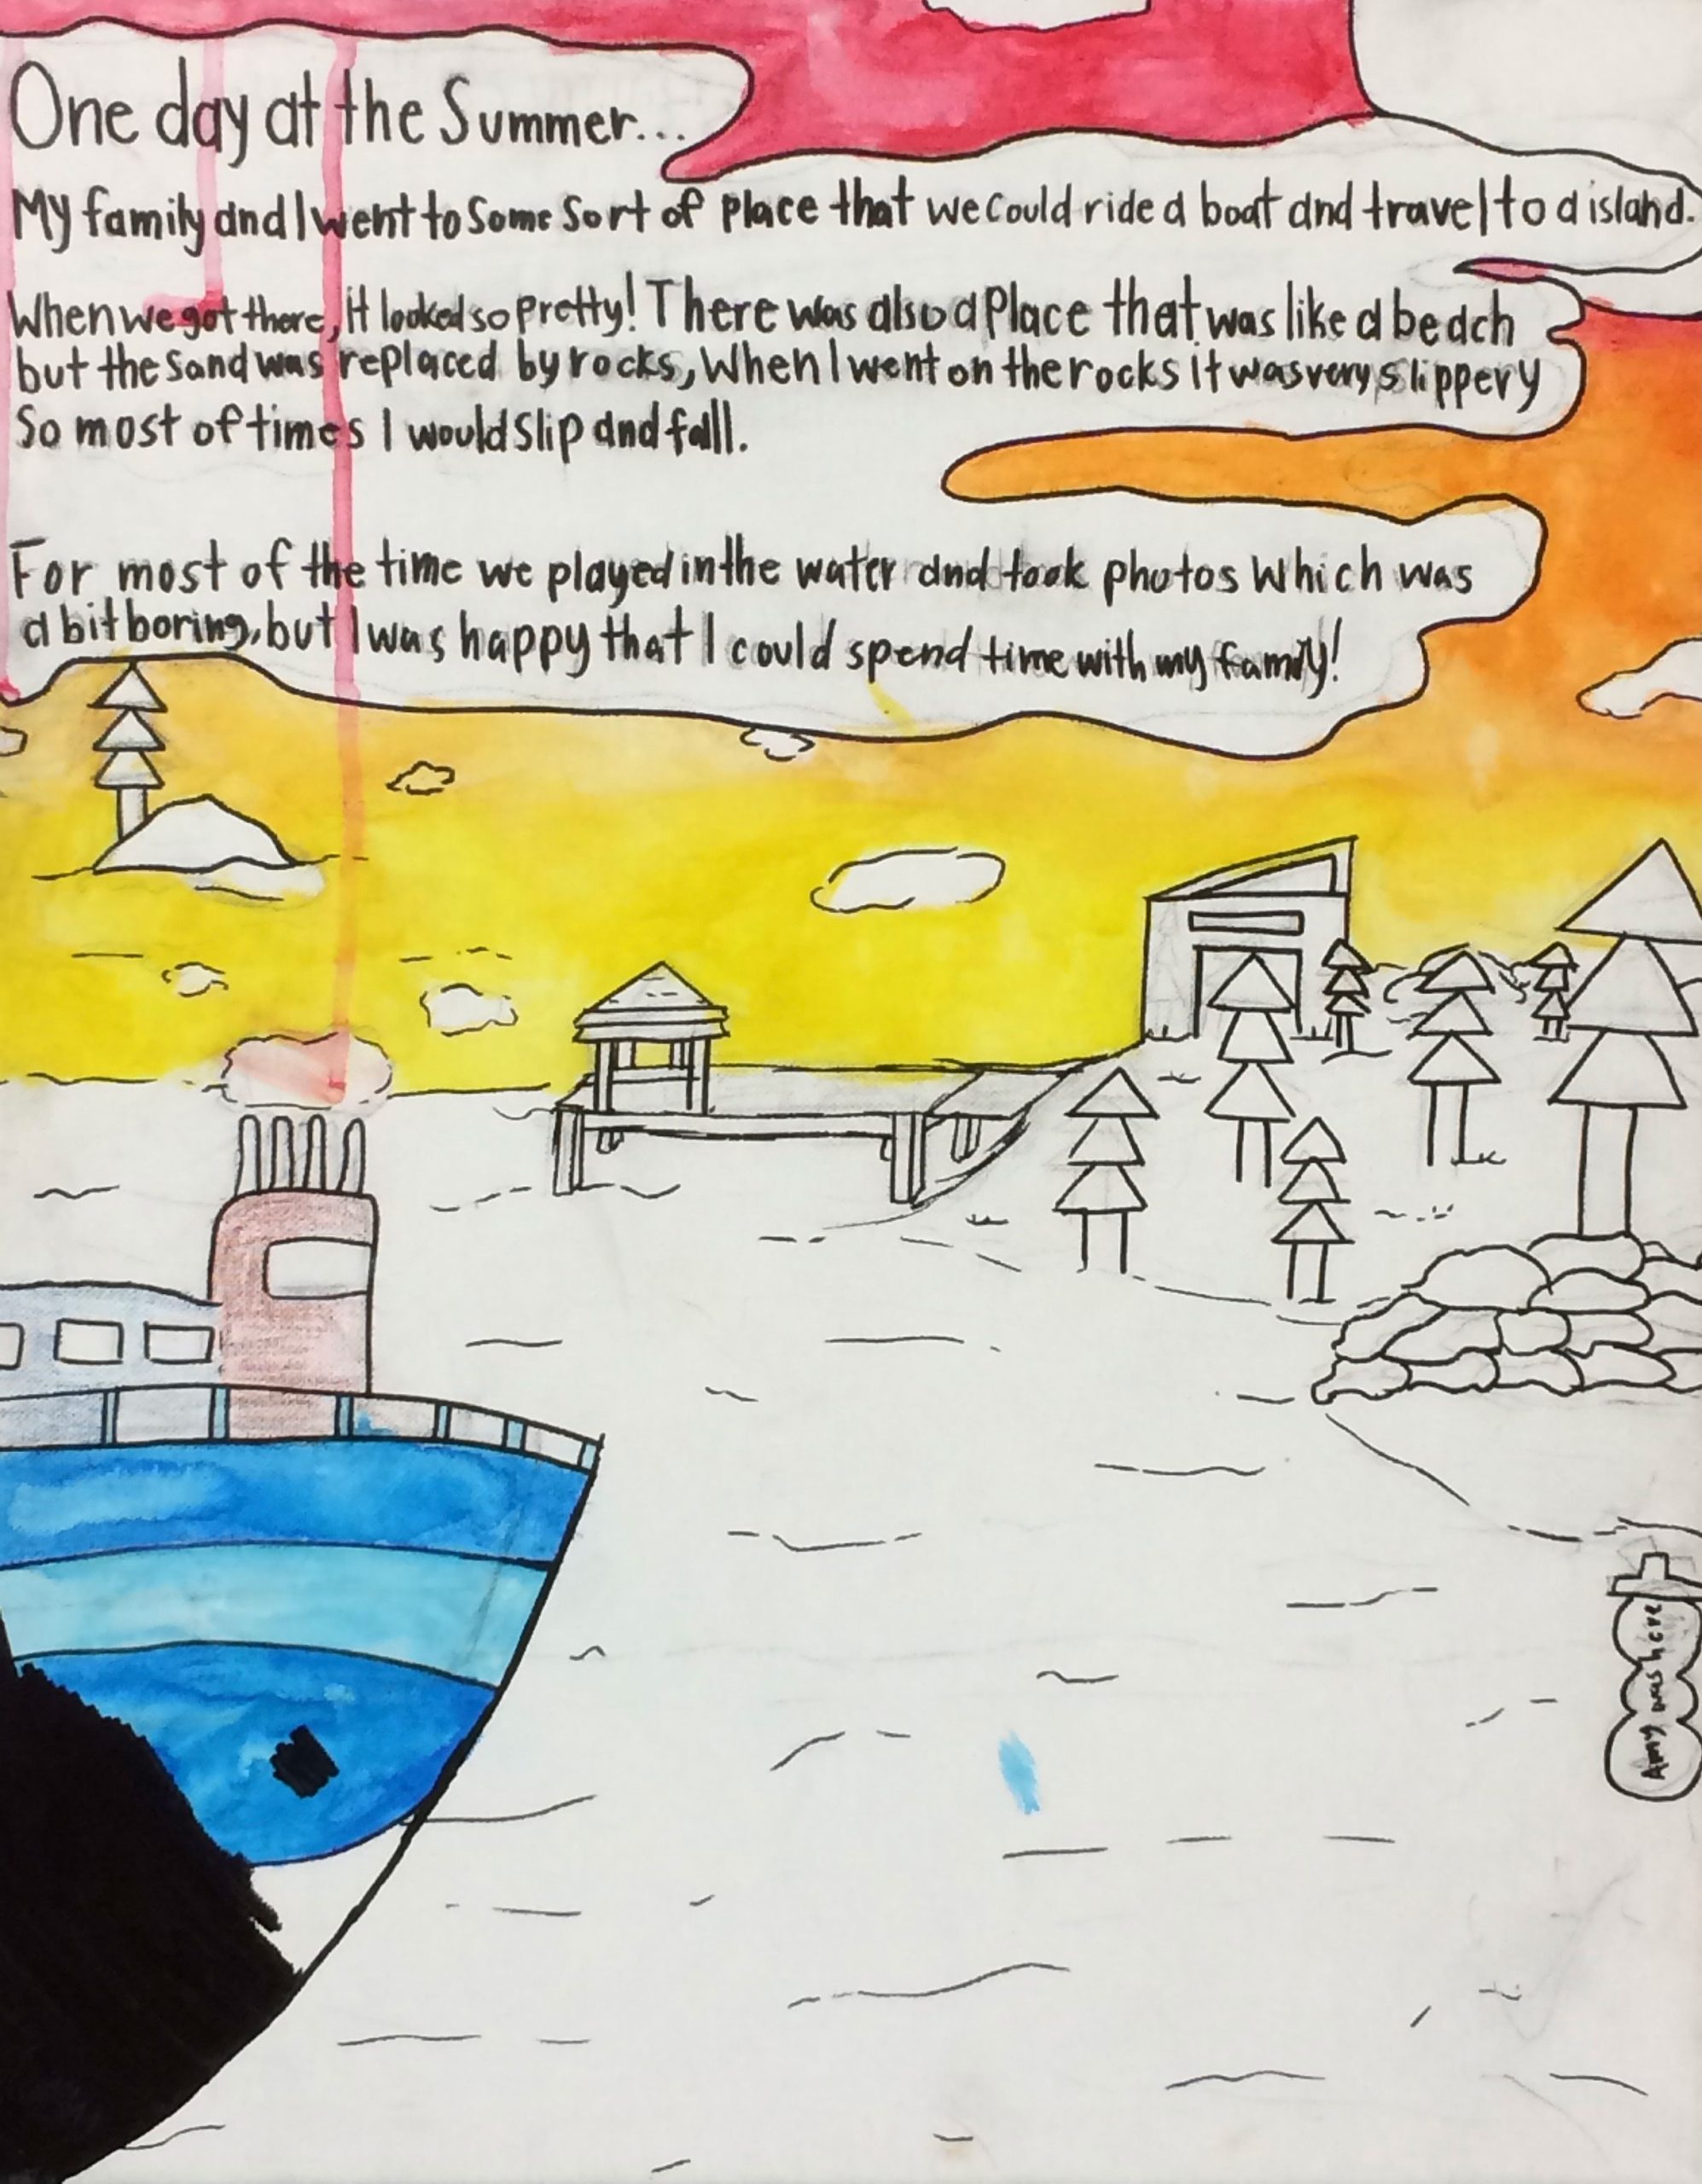 One day at the Summer...
My family and I went to some sort of place that we could ride a boat and travel to a island.
When we got there, it looked so pretty! There was also a place that was like a beach
but the sand was replaced by rocks, When I went on the rocks it was very slippery
So most of times I would slip and fall.
For most of the time we played in the water and took photos which was
a bit boring, but I was happy that I could spend time with my family!
Amy was here